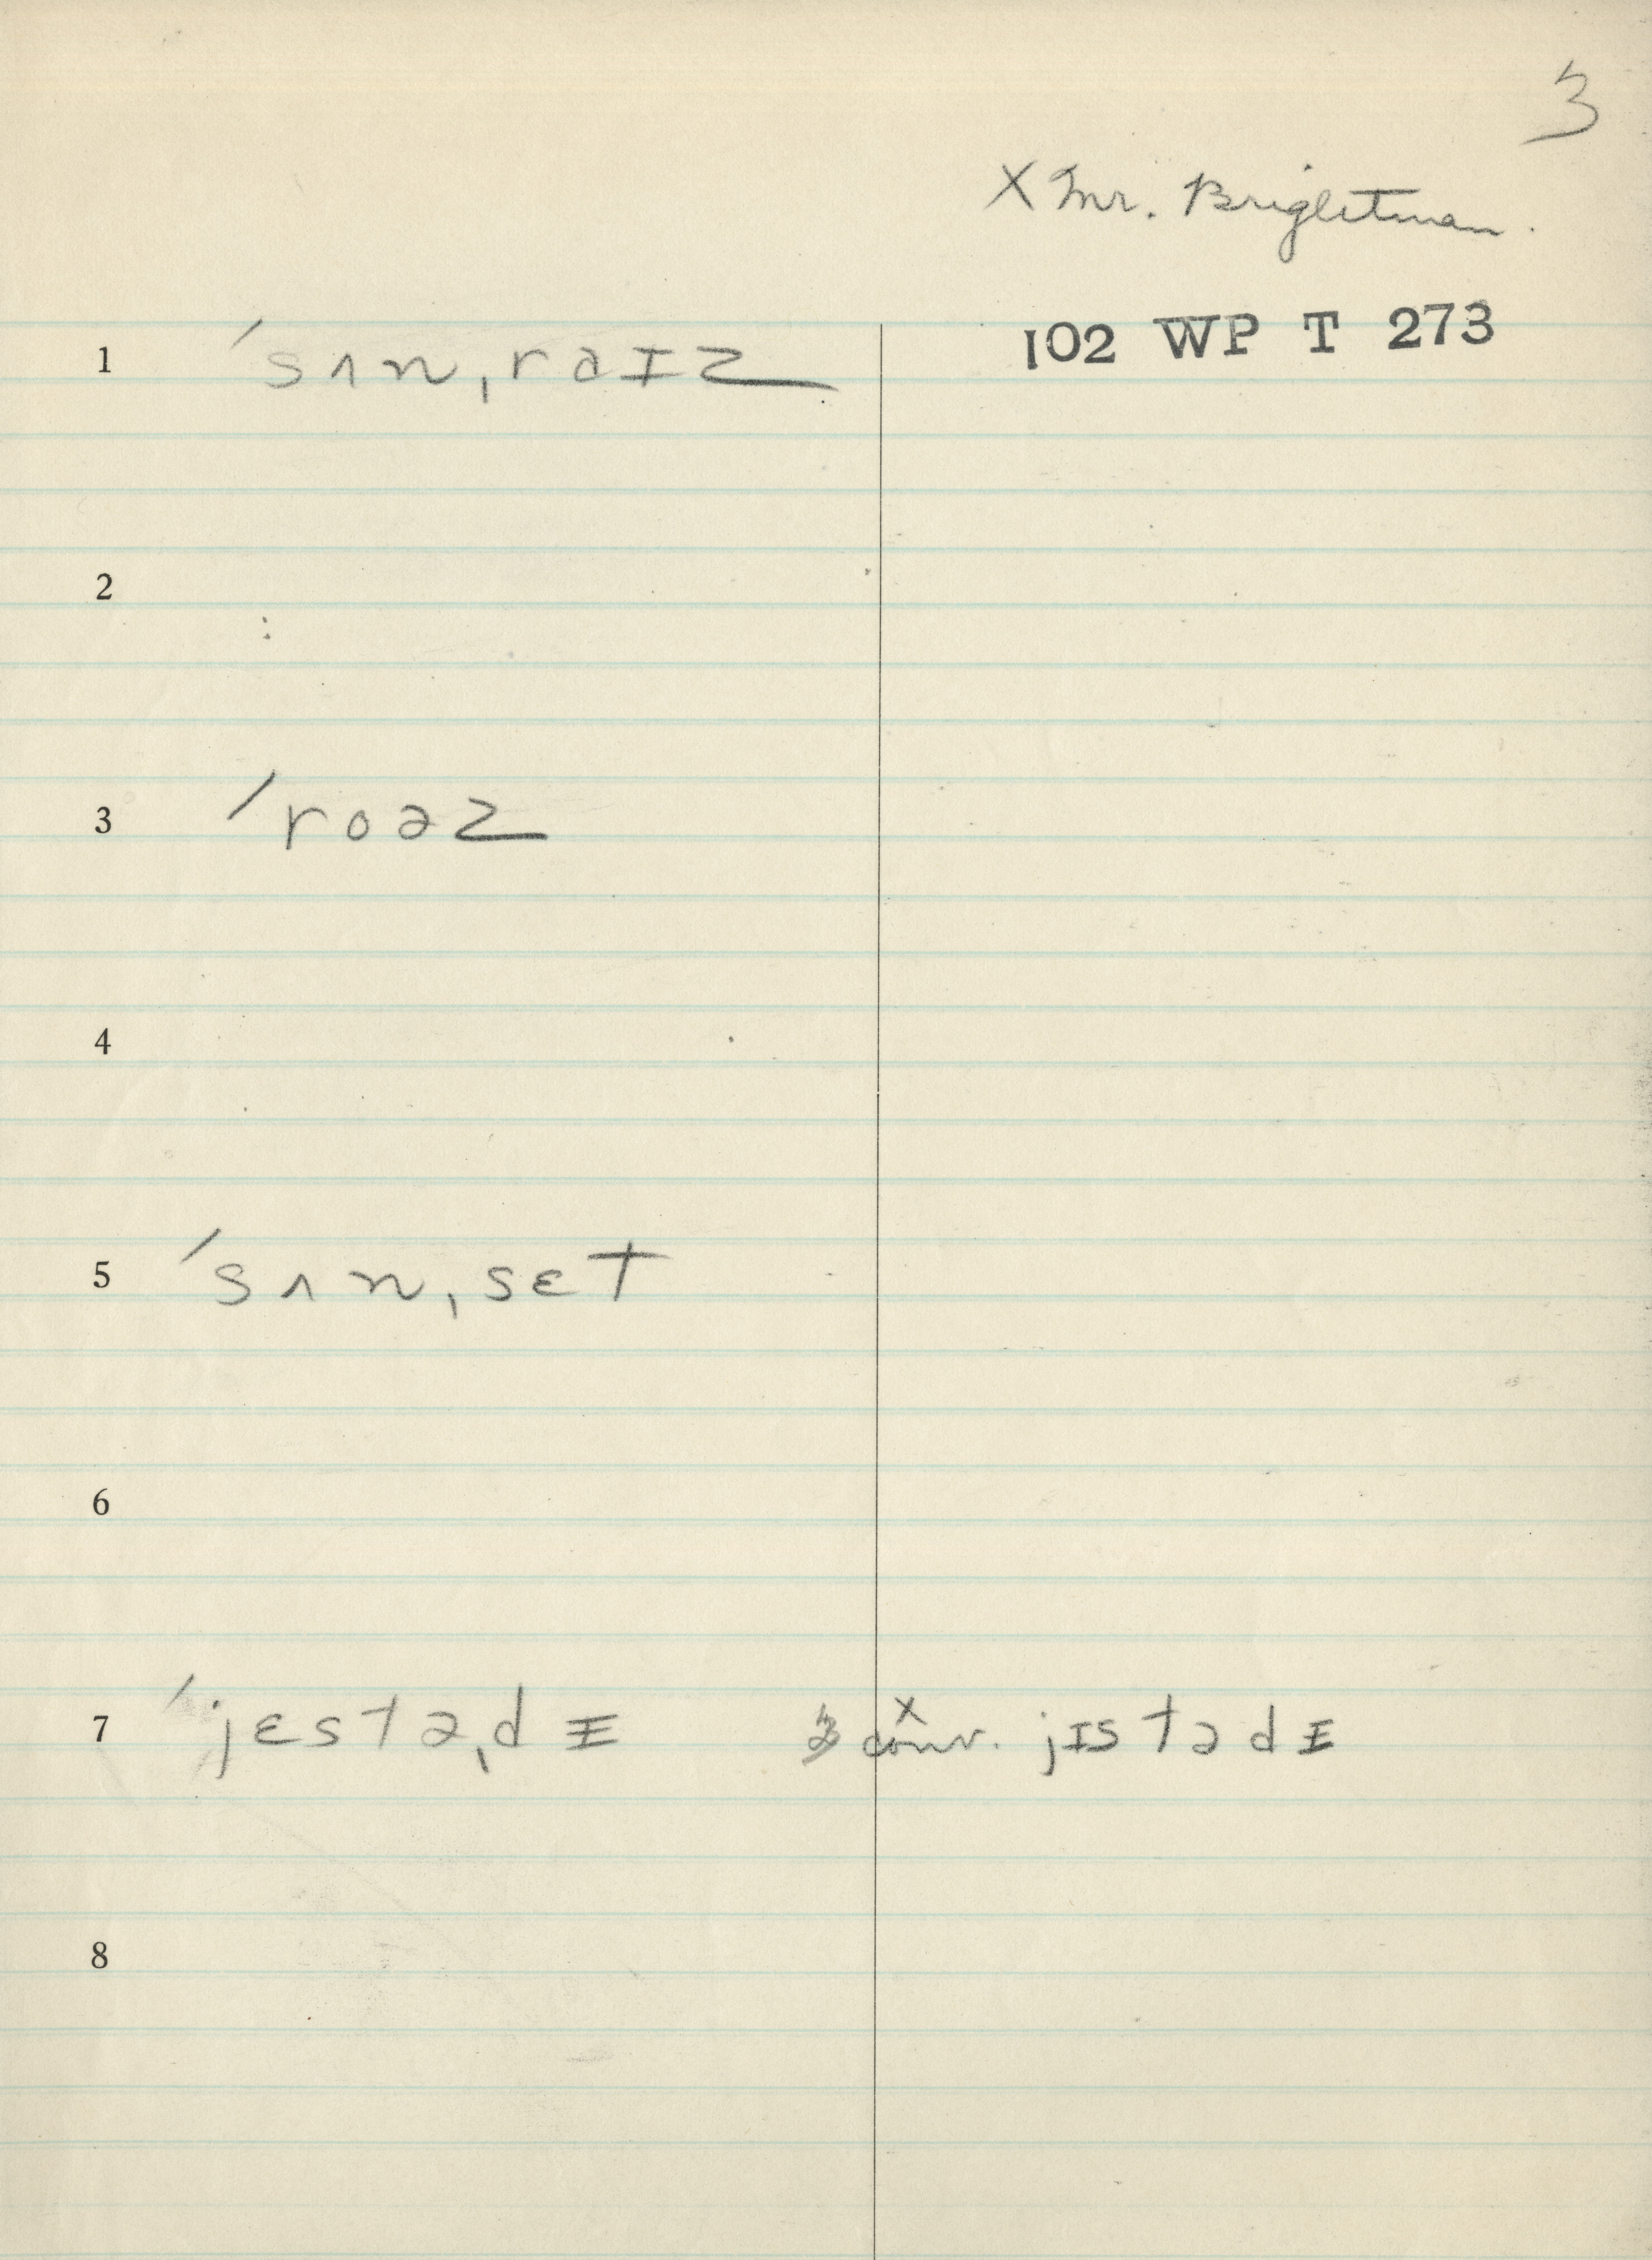 3
X Mr. Brightman.
102 WP T 273
1 ˈsʌnˌraɪz
2
3 ˈroəz
4
5 ˈsʌnˌsɛt
6
7 ˈjɛstəˌdɪ conv. jɪstədɪ
X
8